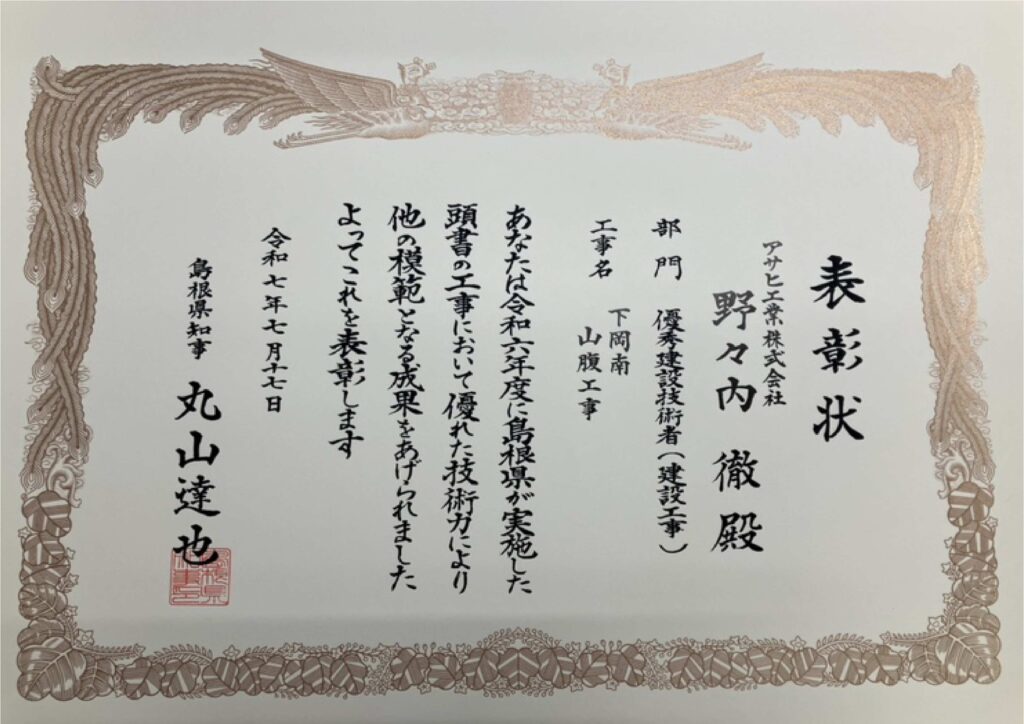 表彰状
アサヒ工業株式会社
野々内 徹 殿
部門 優秀建設技術者(建設工事)
工事名 下岡南
山腹工事
あなたは令和六年度に島根県が実施した
頭書の工事において優れた技術力により
他の模範となる成果をあげられました
よってこれを表彰します
令和七年七月十七日
島根県知事 丸山達也